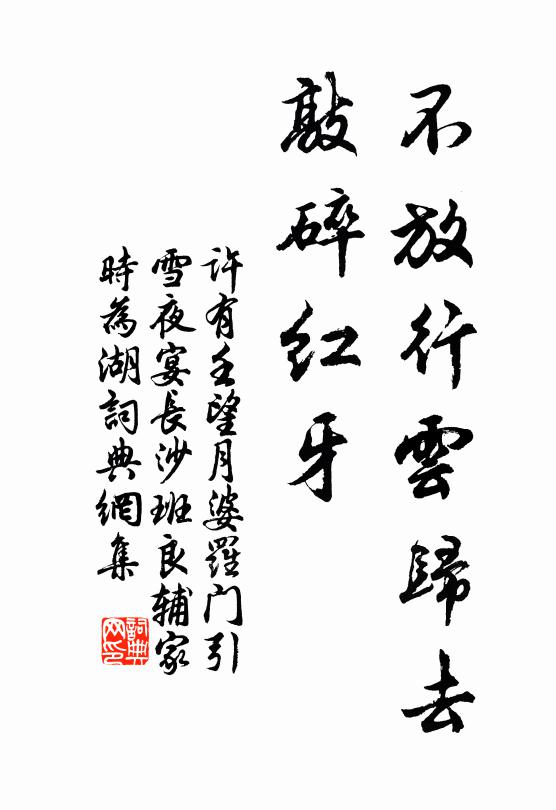 不放行雲歸去
敲碎红牙
许有壬望月婆羅门引
雪夜宴長沙班良辅家
時為湖詞典網集
詞典
网印